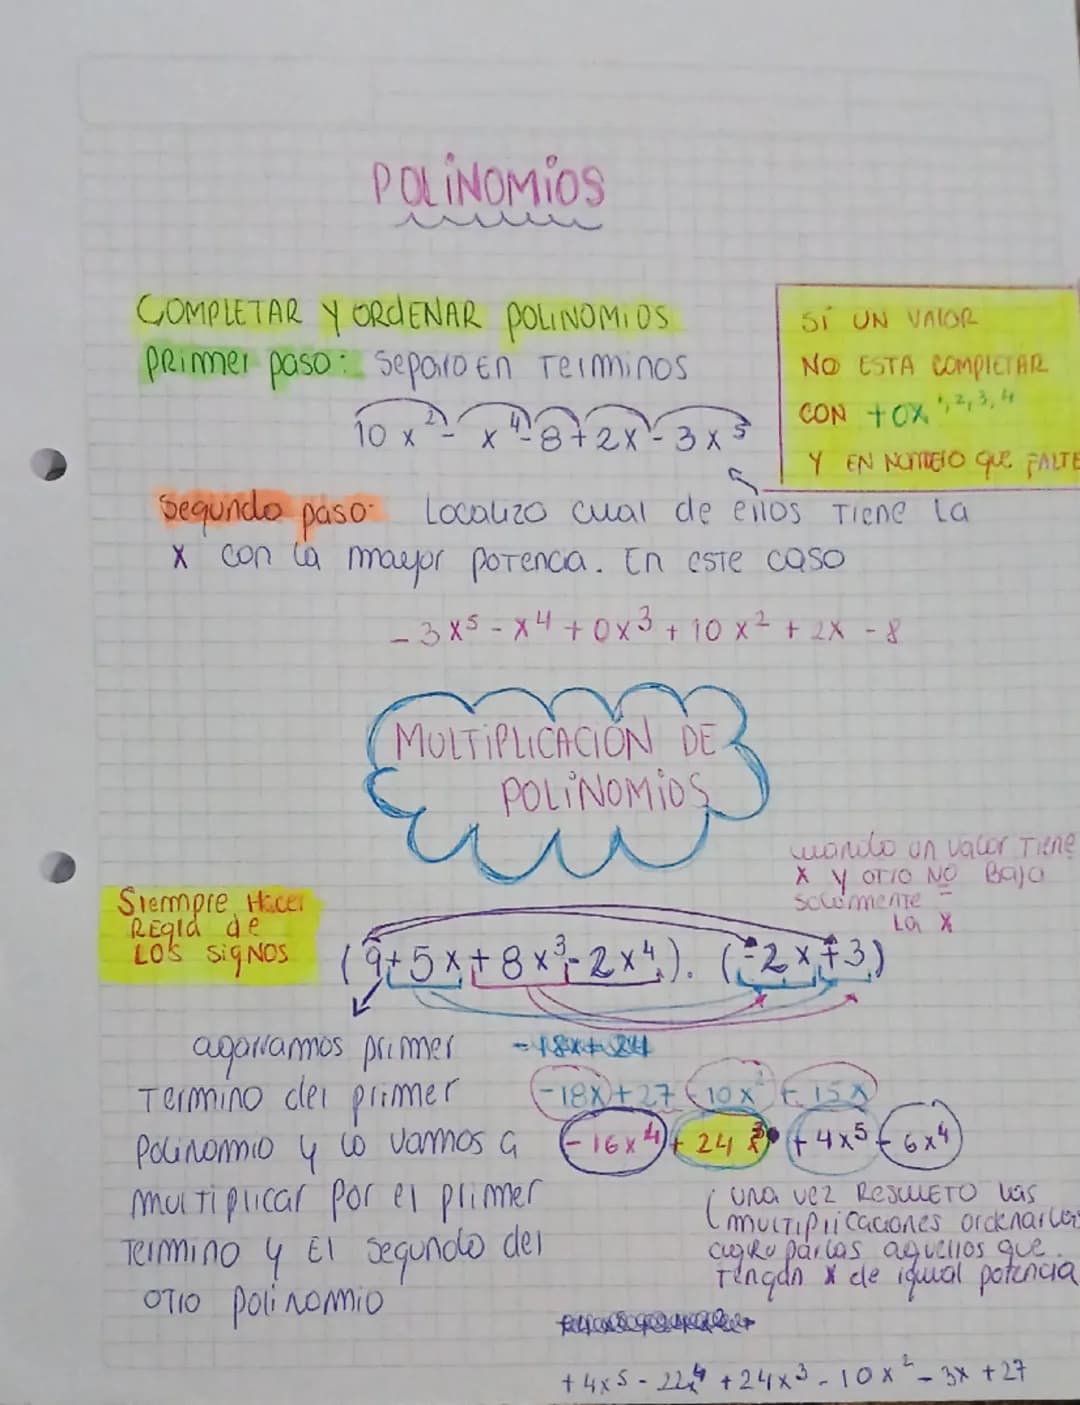 POLINOMIOS
COMPLETAR Y ORDENAR POLINOMIOS
primer paso: Separo En Terminos
10x² - x⁴ - 8 + 2x - 3x⁵
SI UN VALOR
NO ESTA COMPLETAR
CON +0x ¹,²,³,⁴
Y EN NUMERO QUE FALTE
Segundo paso: Localizo cual de ellos Tiene La
X con la mayor Potencia. En este caso
- 3x⁵ - x⁴ + 0x³ + 10x² + 2x - 8
MULTIPLICACION DE
POLINOMIOS
cuando un valor Tiene
X y otro NO Baja
Solamente
La X
Siempre Hacer
REGla de
LOS SigNOS
(9 + 5x + 8x³ - 2x⁴) . (-2x + 3)
agarramos primer
Termino del primer
Polinomio y lo vamos a
multiplicar por el primer
Termino y El segundo del
otro polinomio
-18x + 24
-18x + 27 - 10x² + 15x
- 16x⁴ + 24x³ + 4x⁵ - 6x⁴
(una vez Resuleto las
multiplicaciones ordenarlas
agruparlas aquellos que
Tengan x de igual potencia
+ 4x⁵ - 22x⁴ + 24x³ - 10x² - 3x + 27